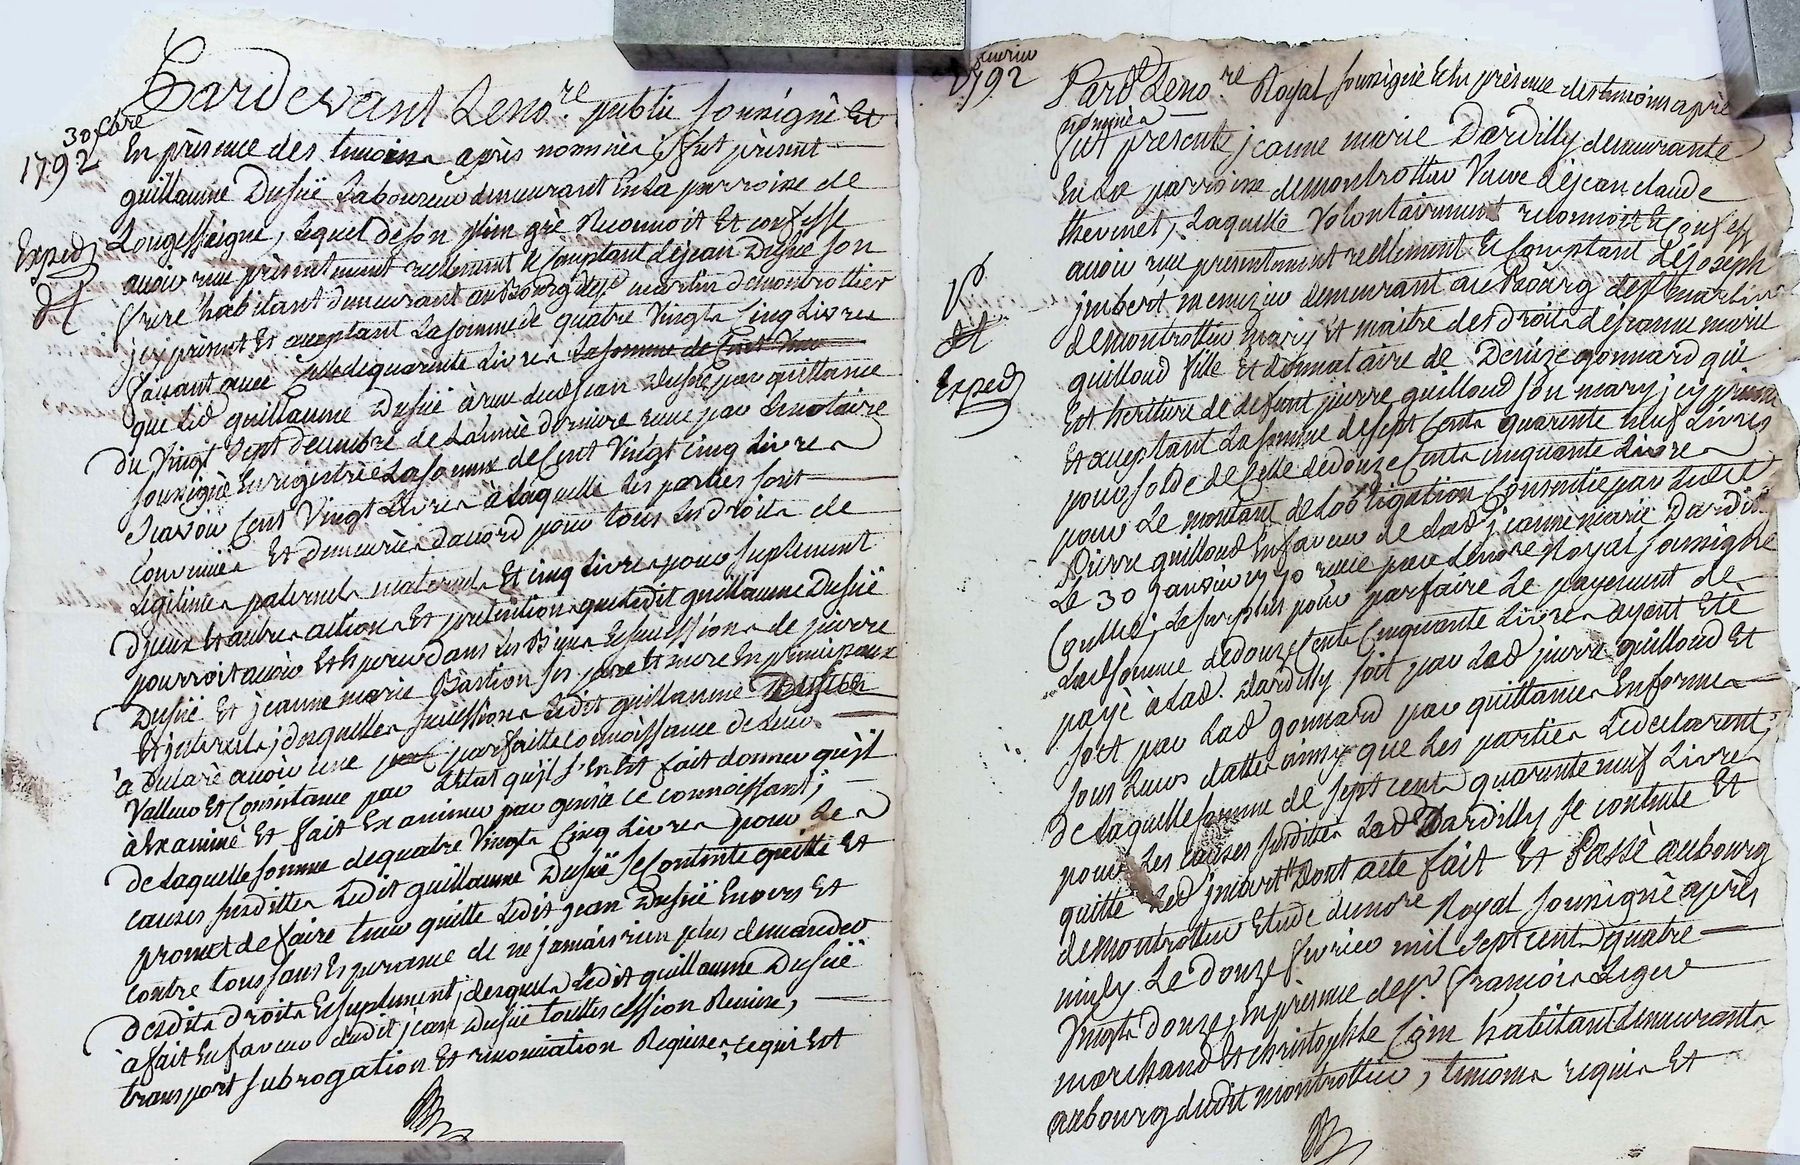 30 8bre
1792
Exped
Pardevant Le no.re public soussigné Et
En présence des temoins après nommés, fut présent
guillaume Dussué Laboureur demeurant En La parroisse de
Longessaigne, Lequel de son plein gré Reconnoit Et confesse
avoir reçu présentement reellement & Comptant de jean Dussué son
frere habitant demeurant au Bourg de st martin de montrottier
jcy présent Et acceptant La somme de quatre Vingts Cinq Livres
faisant avec Celle de quarente Livres La somme de Cent Vin
que Led guillaume Dussué à reçu dud jean Dussué par quittance
du Vingt Sept decembre de L'année derniere reçue par Le notaire
soussigné Enregistrée La somme de Cent Vingt Cinq Livres
Scavoir Cent Vingt Livres à Laquelle Les parties sont
Convenües Et demeurées d'accord pour tous Les Droits de
Légitimes paternels maternels Et Cinq Livres pour suplement
d'jceux Et autres actions Et prétentions que Ledit guillaume Dussué
pourroit avoir Et Esperer dans Les Biens Et successions de pierre
Dussué Et jeanne marie Bastion ses pere Et mere En principaux
Et jnterets, desquelles successions Ledit guillaume Dussué
à declaré avoir une parfaitte connoissance de Leur
Valleur Et Consistance par L'Etat qu'jl s'En Est fait donner qu'jl
à Examiné Et fait Examiner par gens à ce connoissant;
de Laquelle somme de quatre Vingts Cinq Livres pour Les
causes susdittes Ledit guillaume Dussué se Contente quitte Et
promet de faire tenir quitte Ledit jean Dussué Envers Et
Contre tous sans Esperance de ne jamais rien plus demander
desdits droits Et suplement, desquels Ledit guillaume Dussué
à fait En faveur dudit jean Dussué toutte cession Remise,
transport subrogation Et renonciation Requises, ce qui Est
fevrier
1792
Exped
Pard.t Le no.re Royal soussigné & En présence des temoins après
nommés
fut presente jeanne marie Dardilly demeurante
En La parroisse de montrottier Veuve de jean claude
thevenet, Laquelle Volontairement reconnoit & Confesse
avoir reçu presentement reellement & Comptant de joseph
jmbert menuzier demeurant au Bourg de st martin
de montrottier mary Et maitre des Droits de jeanne marie
guilloud fille Et donnataire de Denize gonnard qui
Est heritiere de defunt pierre guilloud son mary, jcy présent
Et acceptant La somme de Sept Cents quarente neuf Livres
pour solde de Celle de douze Cents cinquante Livres
pour Le montant de L'obligation Consentie par Ledit
Pierre guilloud En faveur de Lad jeanne marie Dardilly
Le 30 janvier 1770 reçue par Le no.re Royal soussigné
Controllée; Le surplus pour parfaire Le payement de
Lad somme de douze Cents Cinquante Livres ayant Eté
payé à Lad. Dardilly soit par Led pierre guilloud Et
soit par Lad gonnard par quittances En forme
sous Leurs dattes ainsy que Les parties Le declarent;
de Laquelle somme de Sept cents quarente neuf Livres
pour Les causes susdittes Lad Dardilly se contente Et
quitte Led jmbert Dont acte fait Et Passé au bourg
de montrottier Etude du no.re Royal soussigné après
midy Le Douze fevrier mil Sept cents quatre
Vingts douze, En présence de s.r françois Liger
marchand Et christophle Côm habitant demeurants
au bourg dudit montrottier, temoins requis Et